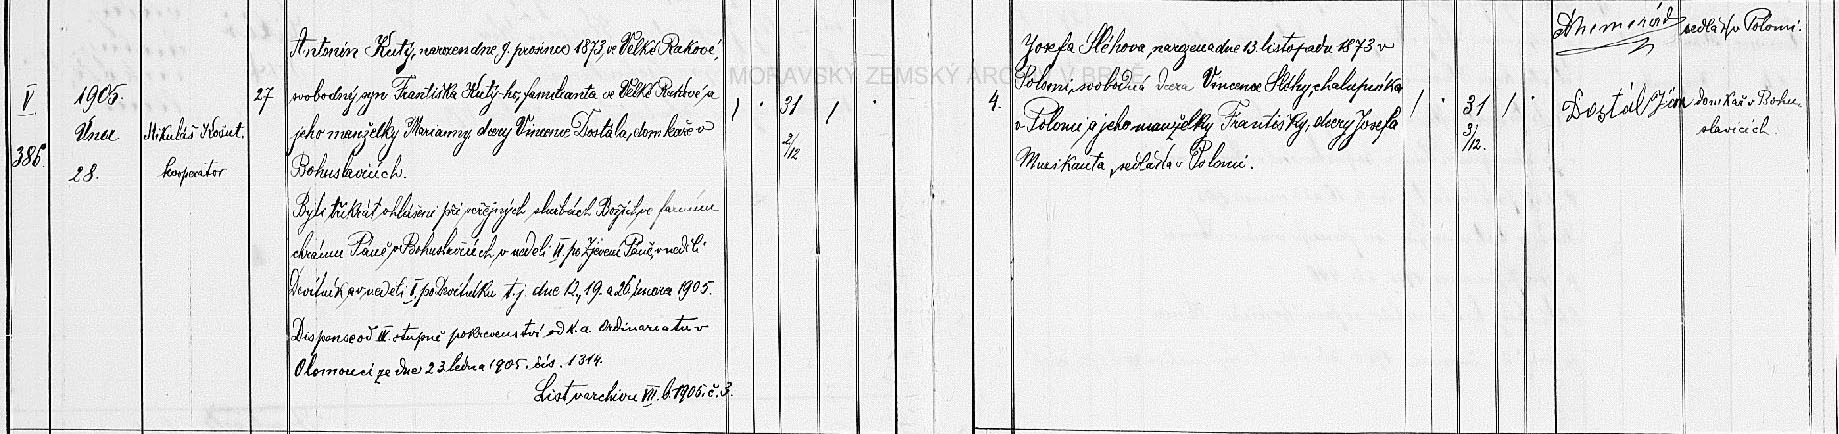 V
386.
1905.
Února
28.
Mikuláš Košut.
kooperátor
27
Antonín Kutý, narozen dne 9. prosince 1873, ve Velké Rakové,
svobodný syn Františka Kutý-ho, familianta ve Velké Rakové, a
jeho manželky Marianny dcery Vincence Dostála, domkáře v
Bohuslavicích.
Byli třikrát ohlášeni při veřejných službách Božích ve farním
chrámu Páně v Bohuslavicích, v neděli VI. po Zjevení Páně, v neděli
Devítník, a v neděli I. po Devítníku t. j. dne 12., 19. a 26. února 1905.
Dispense od III. stupně pokrevenství od k. a. Ordinariatu v
Olomouci ze dne 23 ledna 1905. čís. 1314.
List v archivu VII. b. 1905. č. 3.
1
31
2/12
1
MORAVSKÝ ZEMSKÝ ARCHIV V BRNĚ
4.
Josefa narozena dne 13. listopadu 1873 v
Polomi, svobodná dcera Vincence chalupníka
v Polomi, a jeho manželky Františky, dcery Josefa
Musikanta, sedláka v Polomi.
1
31
3/12.
1
sedlák v Polomi.
Dostál Jan domkář v Bohu-
slavicích.